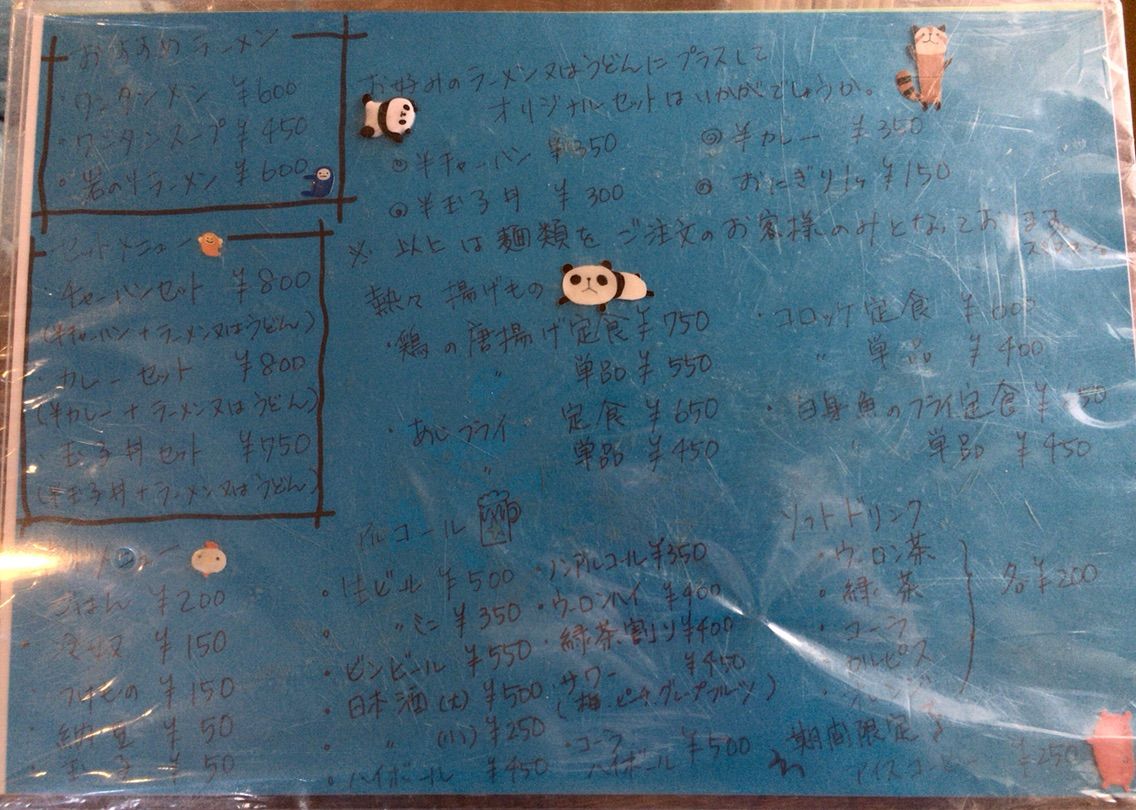 おすすめラーメン
・ワンタンメン ¥600
・ワンタンスープ ¥450
・岩のりラーメン ¥600
セットメニュー
・チャーハンセット ¥800
(半チャーハン+ラーメン又はうどん)
・カレーセット ¥800
(半カレー+ラーメン又はうどん)
・玉子丼セット ¥750
(半玉子丼+ラーメン又はうどん)
お好みのラーメン又はうどんにプラスして
オリジナルセットはいかがでしょうか。
◎半チャーハン ¥350
◎半カレー ¥350
◎半玉子丼 ¥300
◎おにぎり1ヶ ¥150
※ 以上は麺類をご注文のお客様のみとなっております。
熱々 揚げもの
・鶏の唐揚げ定食 ¥750
〃 単品 ¥550
・あじフライ 定食 ¥650
〃 単品 ¥450
・コロッケ定食
〃 単品 ¥400
・白身魚のフライ定食
〃 単品 ¥450
メニュー
ごはん ¥200
・冷奴 ¥150
・つけもの ¥150
・納豆 ¥50
・玉子 ¥50
アルコール
・生ビール ¥500
・〃ミニ ¥350
・ビンビール ¥550
・日本酒(大) ¥500
・〃(小) ¥250
・ハイボール ¥450
・ノンアルコール ¥350
・ウーロンハイ ¥400
・緑茶割り ¥400
・サワー ¥450
(梅、ピーチ、グレープフルーツ)
・コーラ
ハイボール ¥500
ソフトドリンク
・ウーロン茶
・緑茶
・コーラ
・カルピス
・オレンジ
各¥200
期間限定
アイスコーヒー ¥250